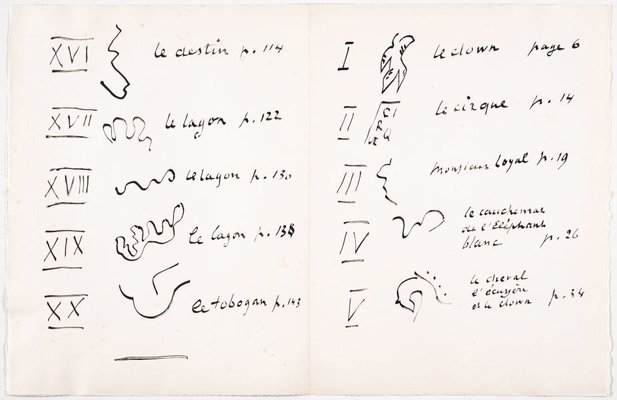 XVI le destin p. 114
XVII le lagon p. 122
XVIII le lagon p. 130
XIX le lagon p. 138
XX le tobogan p. 143
I le clown page 6
II le cirque p. 14
III monsieur loyal p. 19
IV le cauchemar
de l'éléphant
blanc p. 26
V le cheval
l'écuyère
et le clown p. 34